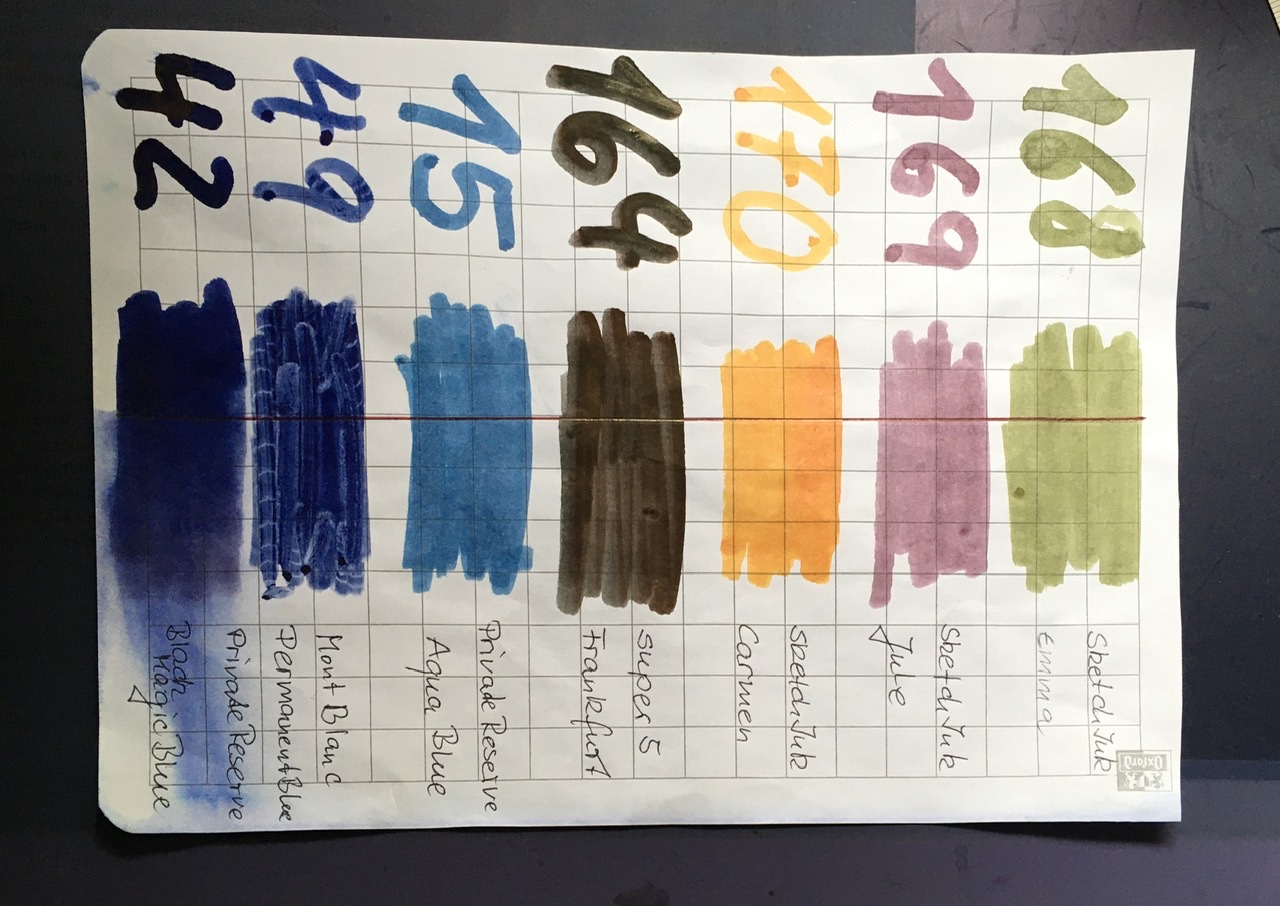 Oxford
168
Sketch Ink
Emma
169
Sketch Ink
Jule
170
Sketch Ink
Carmen
164
super 5
Frankfurt
15
Private Reserve
Aqua Blue
49
Mont Blanc
Permanent Blue
42
Private Reserve
Black Magic Blue